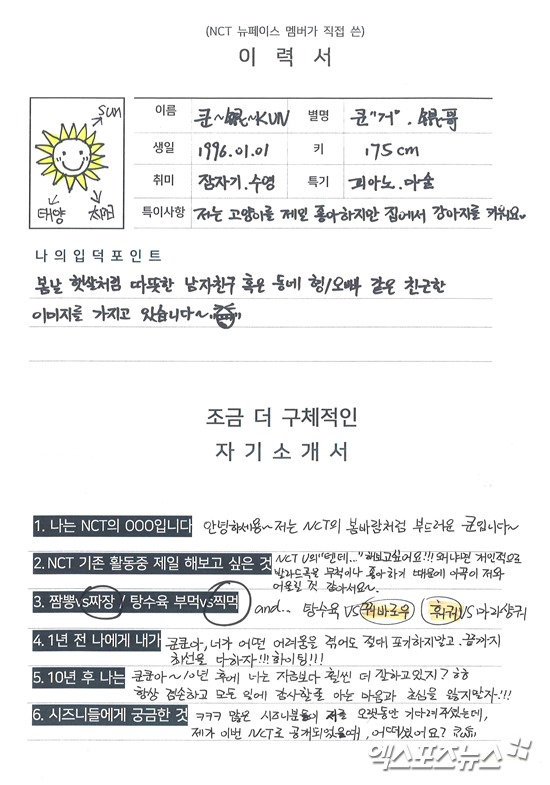 (NCT 뉴페이스 멤버가 직접 쓴)
이 력 서
SUN
태양 太阳
이름 쿤~锟~KUN 별명 쿤"거". 锟哥
생일 1996.01.01 키 175cm
취미 잠자기.수영 특기 피아노.마술
특이사항 저는 고양이를 제일 좋아하지만 집에서 강아지를 키워요♥
나의입덕포인트
봄날 햇살처럼 따뜻한 남자친구 혹은 동네 형/오빠 같은 친근한
이미지를 가지고 있습니다~
조금 더 구체적인
자 기 소 개 서
1. 나는 NCT의 OOO입니다 안녕하세용~ 저는 NCT의 봄바람처럼 부드러운 쿤입니다~
2. NCT 기존 활동중 제일 해보고 싶은 것 NCT U의 "텐데..." 해보고싶어요!!! 왜냐면 개인적으로
발라드곡을 무척이나 좋아하기 때문에 이곡이 저와
어울릴 것 같아서요~
3. 짬뽕vs짜장 / 탕수육 부먹vs찍먹 and.. 탕수육 VS 꿔바로우 훠궈 VS 마라샹궈
4. 1년 전 나에게 내가 쿤쿤아, 너가 어떤 어려움을 겪어도 절대 포기하지말고 끝까지
최선을 다하자!!! 화이팅!!!
5. 10년 후 나는 쿤쿤아~ 10년 후에 너는 지금보다 훨씬 더 잘하고있지? ㅎㅎ
항상 겸손하고 모든 일에 감사할줄 아는 마음과 초심을 잃지말자~!!!
6. 시즈니들에게 궁금한 것 ㅋㅋㅋ 많은 시즈니분들이 저를 오랫동안 기다려주셨는데,
제가 이번 NCT로 공개되었을때, 어떠셨어요?
엑스포츠뉴스